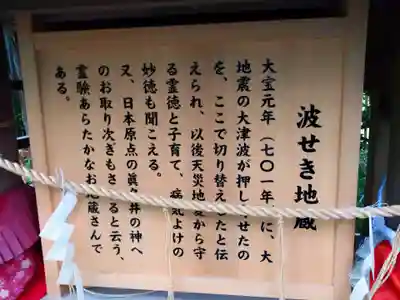 波せき地蔵
大宝元年(七〇一年)に、大
地震の大津波が押し寄せたの
を、ここで切り替えしたと伝
えられ、以後天災地変から守
る霊徳と子育て、病気よけの
妙徳も聞こえる。
又、日本原点の眞名井の神へ
のお取り次ぎもされると云う、
霊験あらたかなお地蔵さんで
ある。